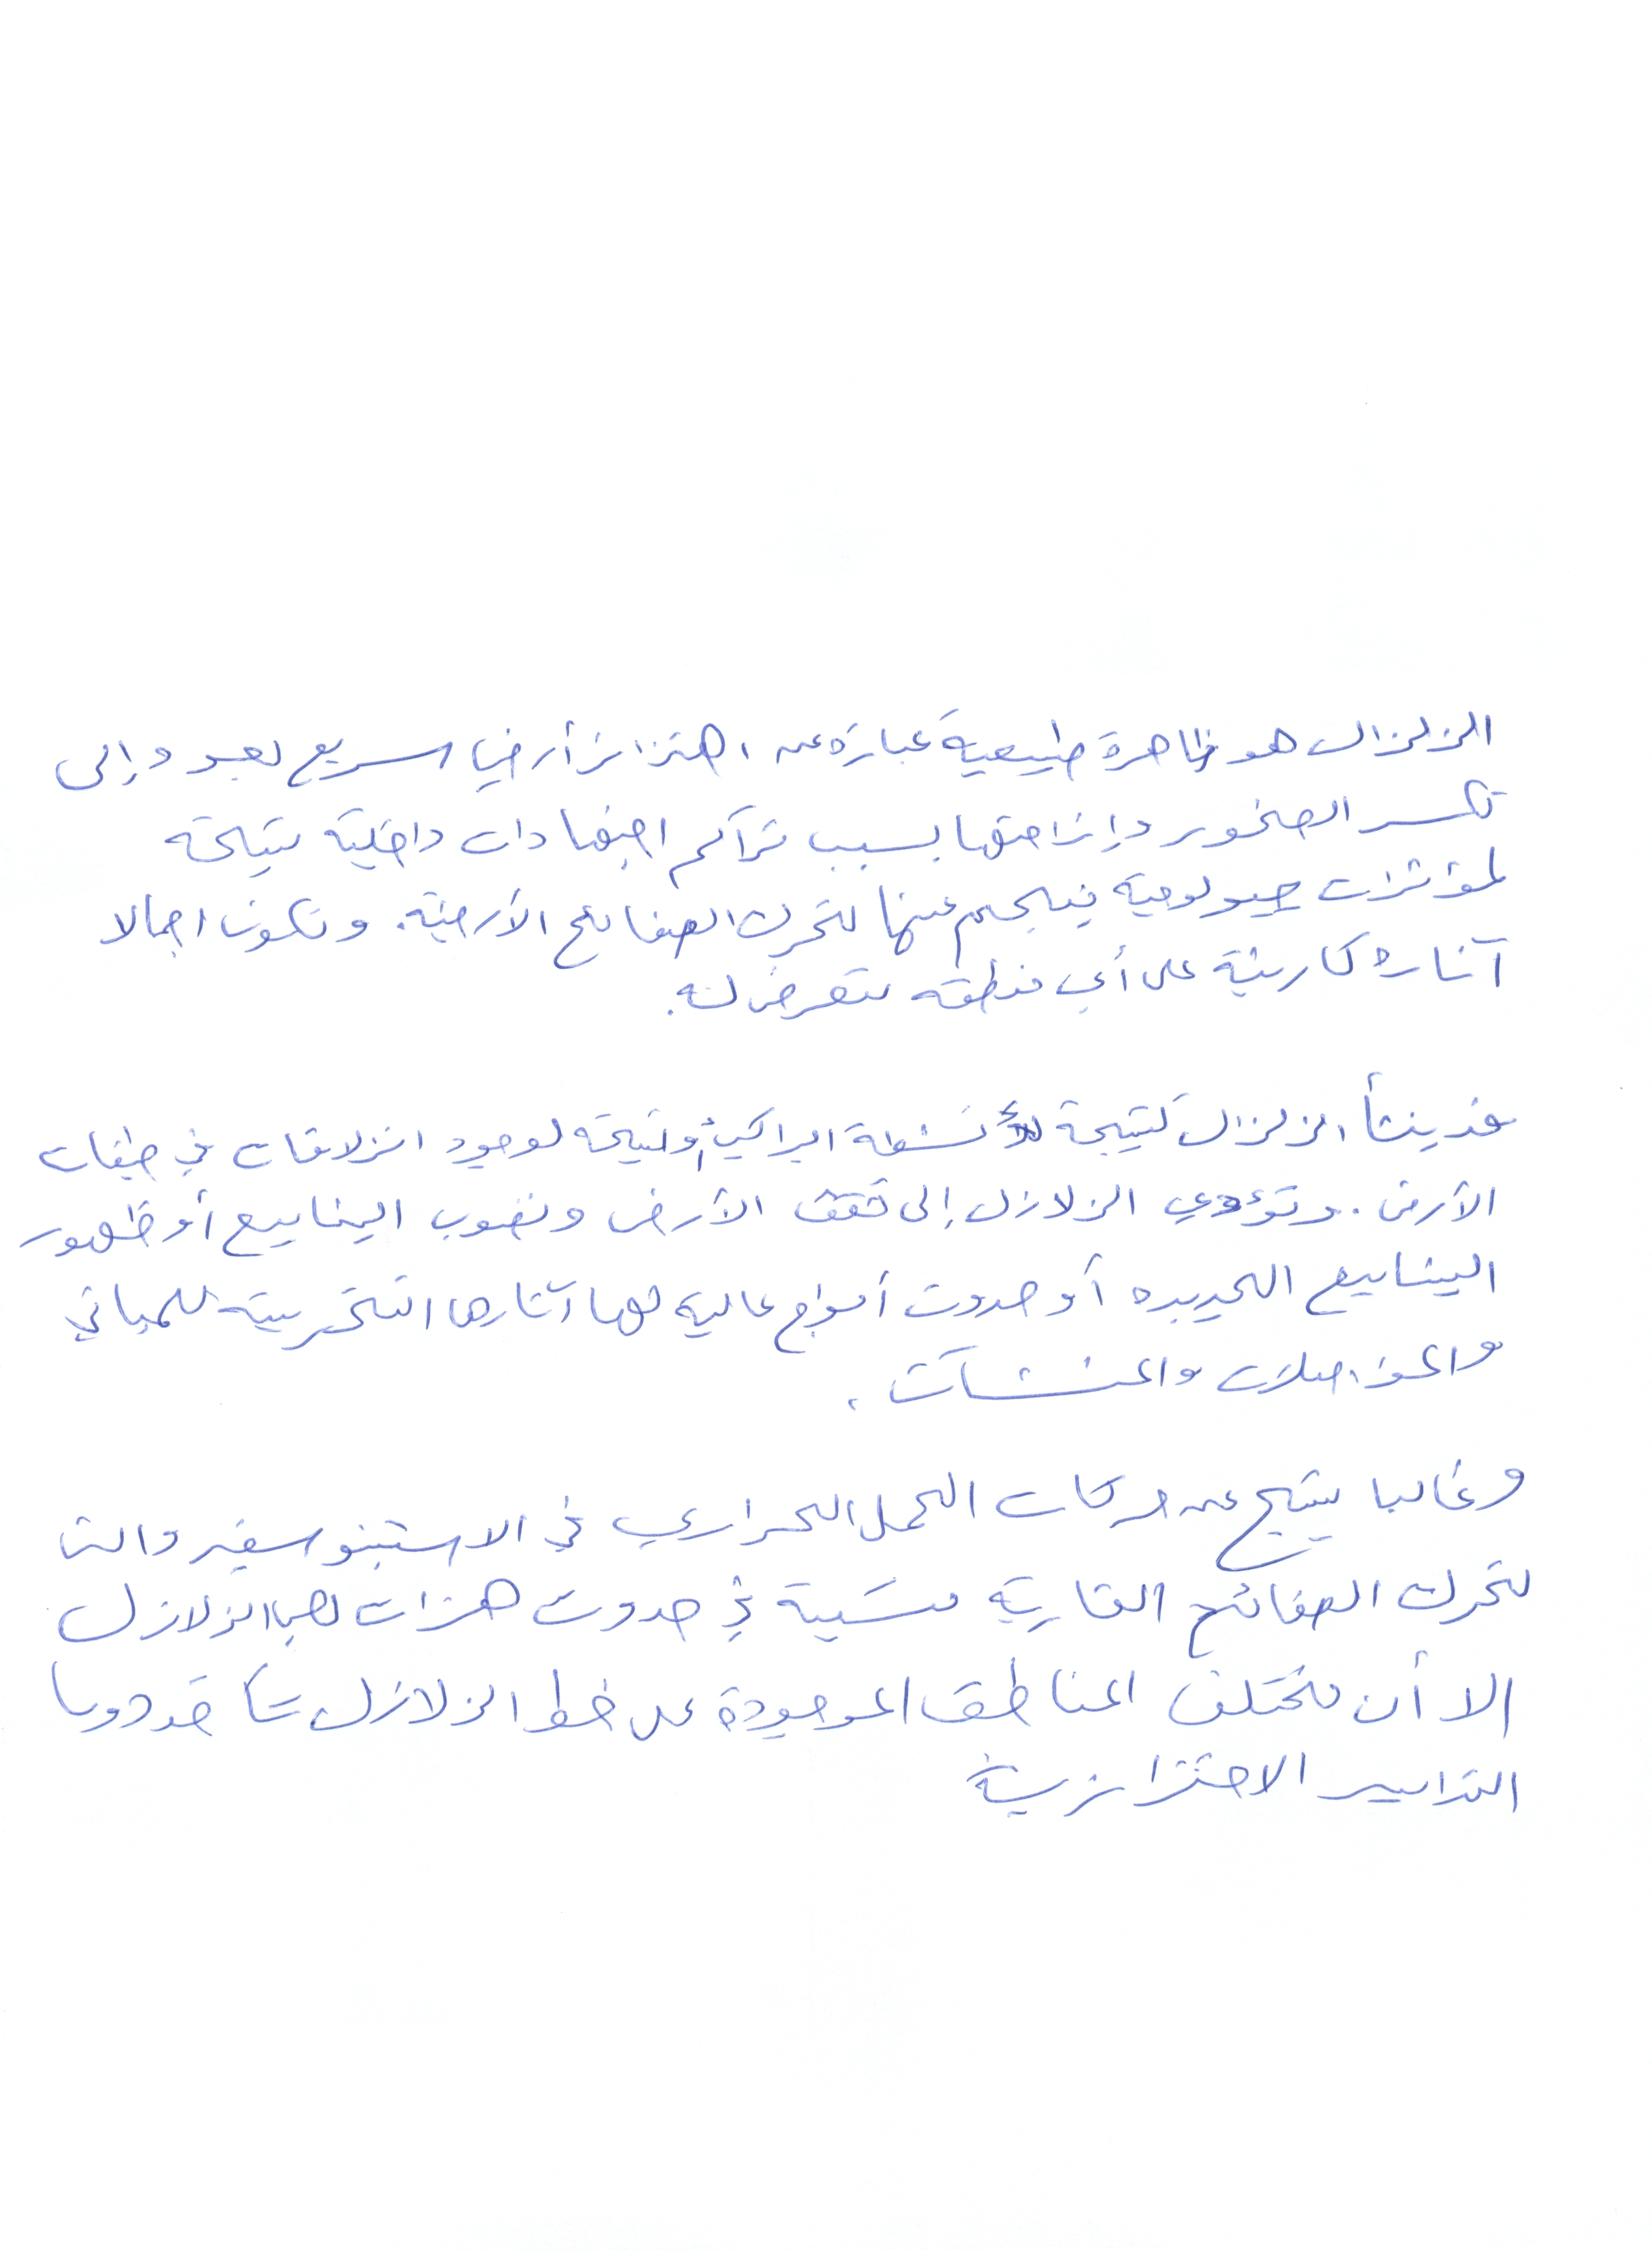 الزلزال هو ظاهرة طبيعية عبارة عن اهتزاز أرضي سريع يعود إلى
تكسر الصخور وإزاحتها بسبب تراكم اجهادات داخلية نتيجة
لمؤثرات جيولوجية ينجم عنها تحرك الصفائح الأرضية. وتكون اجمالا
آثاره كارثية على أي منطقه تتعرض له.
قد ينشأ الزلزال كنتيجة لأنشطة البراكين أو نتيجة لوجود انزلاقات في طبقات
الأرض. وتؤدي الزلازل إلى تشقق الأرض ونضوب الينابيع أو ظهور
الينابيع الجديده أو حدوث أمواج عالية لها آثارها التخريبية للمباني
والمواصلات والمنشآت.
وغالبا ينتج عن حركات الحمل الحراري في الاستينوسفير والتي
تحرك الصفائح القارية مسببة في حدوث هزات هي الزلازل
إلا أن مختلف المناطق الموجودة على خط الزلازل
التدابير الاحترازية